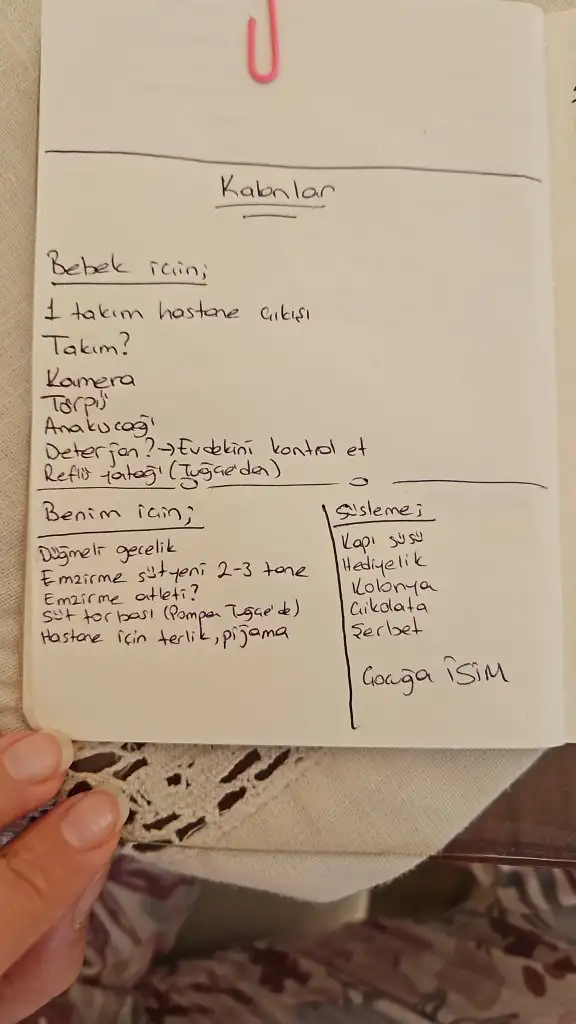 Kalanlar
Bebek için;
1 takım hastane çıkışı
Takım?
Kamera
Törpü
Anakucağı
Deterjan? → Evdekini kontrol et
Reflü yatağı (Tuğçe'den)
Benim için;
Düğmeli gecelik
Emzirme sütyeni 2-3 tane
Emzirme atleti?
Süt torbası (Pompa Tuğçe'de)
Hastane için terlik, pijama
Süsleme;
Kapı süsü
Hediyelik
Kolonya
Çikolata
Şerbet
Çocuğa İSİM